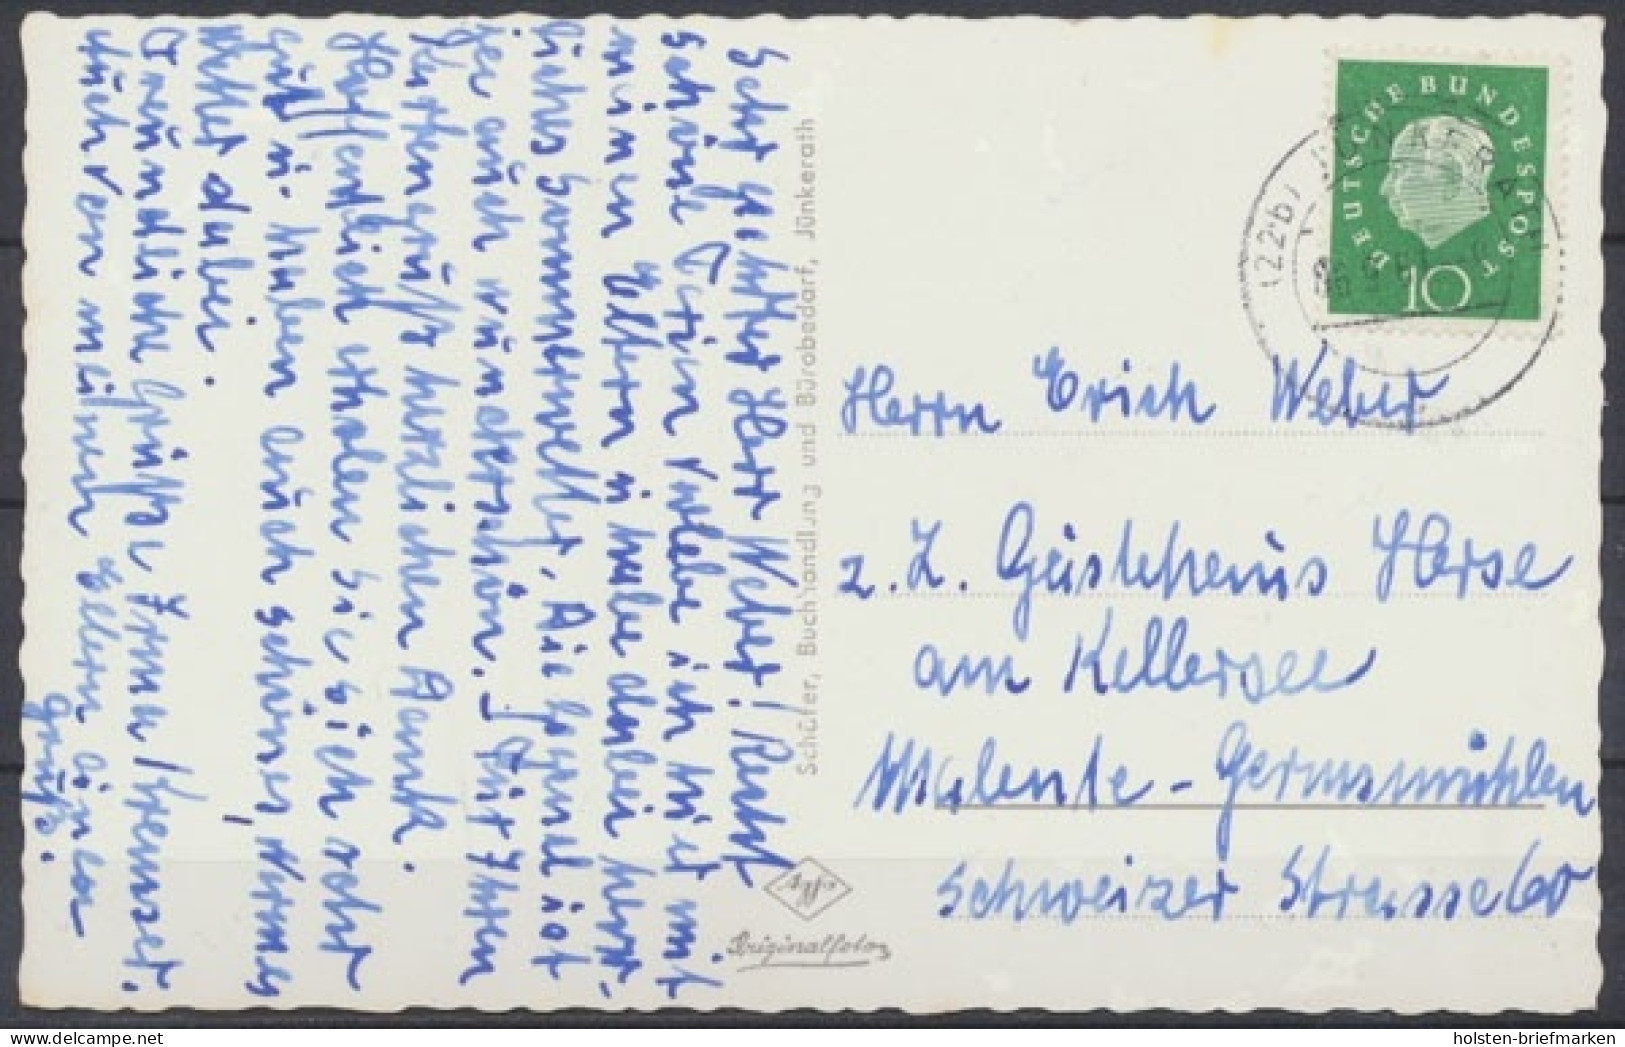 Sehr geehrter Herr Weber! Recht
schöne Ferien verlebe ich hier mit
meinen Eltern u. habe dabei herr-
liches Sommerwetter. Die Gegend ist
ja auch wunderschön. Für Ihren
Kartengruß herzlichen Dank.
Hoffentlich erholen Sie sich sehr
gut u. haben auch schönes, warmes
Wetter dabei.
Freundliche Grüße Irma
auch von meinen Eltern einen
Gruß.
Schäfer, Buchhandlung und Bürobedarf, Jünkerath
Agfa
Originalfoto
DEUTSCHE BUNDESPOST
10
(22b) JÜNKERATH
Herrn Erich Weber
z. Z. Gästehaus Herse
am Kellersee
Malente-Gremsmühlen
Schweizer Strasse 60
holsten-briefmarken